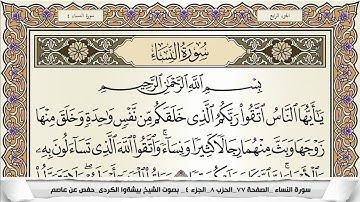 الجزء الرابع
سورة النساء ٤
سُورَةُ النِّسَاءِ
بِسْمِ اللَّهِ الرَّحْمَٰنِ الرَّحِيمِ
يَا أَيُّهَا النَّاسُ اتَّقُوا رَبَّكُمُ الَّذِي خَلَقَكُم مِّن نَّفْسٍ وَاحِدَةٍ وَخَلَقَ مِنْهَا
زَوْجَهَا وَبَثَّ مِنْهُمَا رِجَالًا كَثِيرًا وَنِسَاءً ۚ وَاتَّقُوا اللَّهَ الَّذِي تَسَاءَلُونَ بِهِ
سورة النساء _الصفحة ٧٧_الحزب ٨_الجزء ٤_ بصوت الشيخ بيشەوا الكردى_حفص عن عاصم